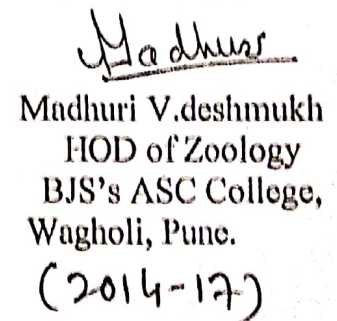 Madhuri
Madhuri V.deshmukh
HOD of Zoology
BJS's ASC College,
Wagholi, Pune.
(2014-17)